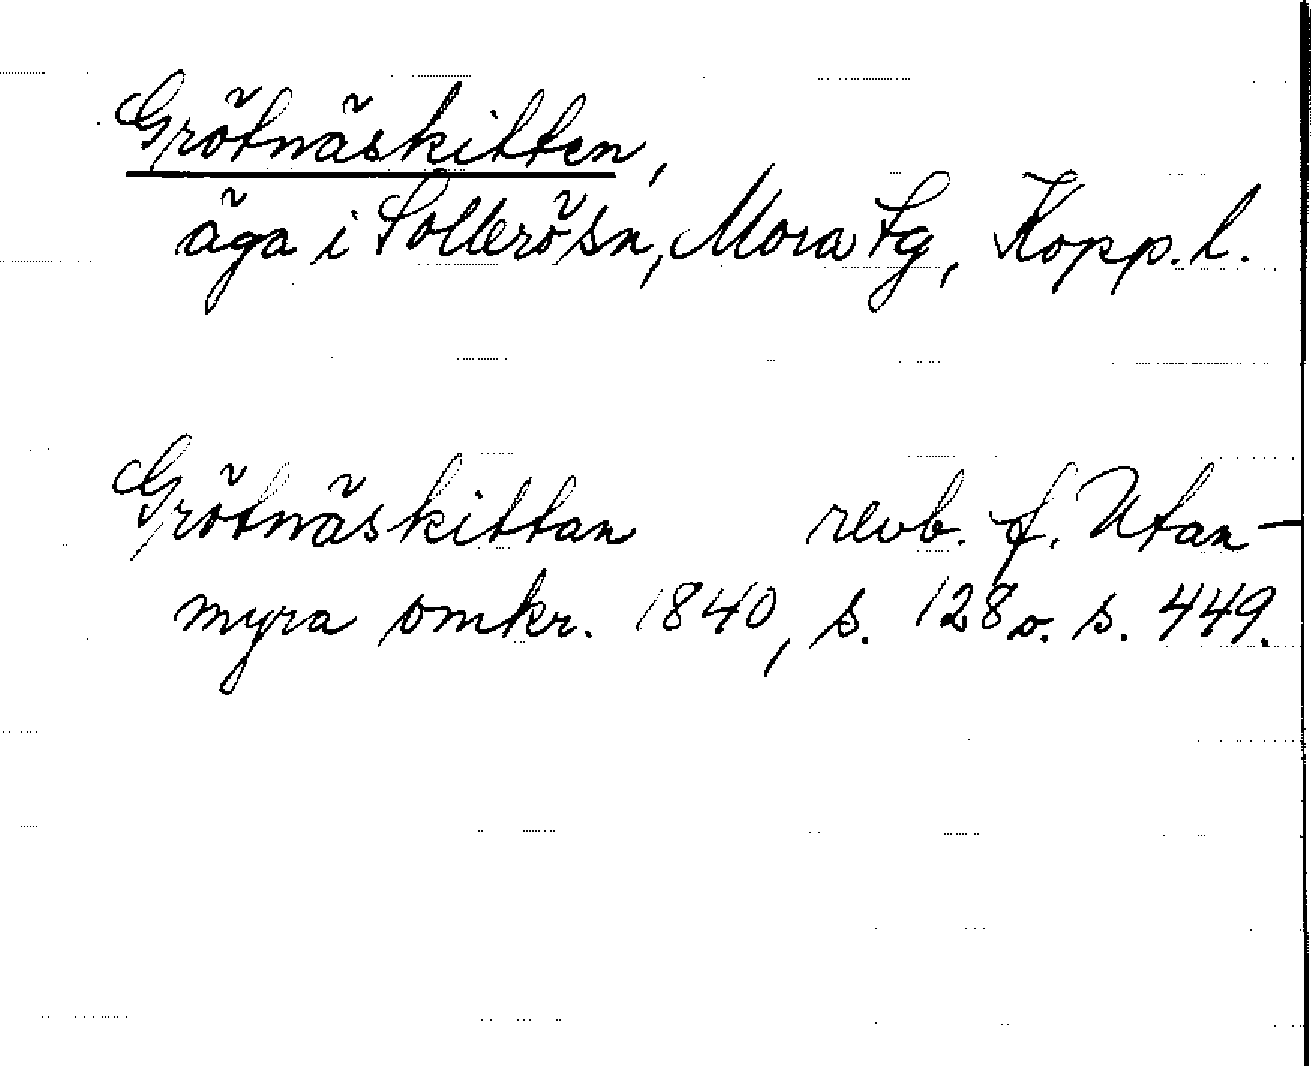 Grötnäskitten,
äga i Sollerö sn, Mora tg, Kopp. l.
Grötnäskittan revb. f. Utan-
myra omkr. 1840, s. 128 o. s. 449.